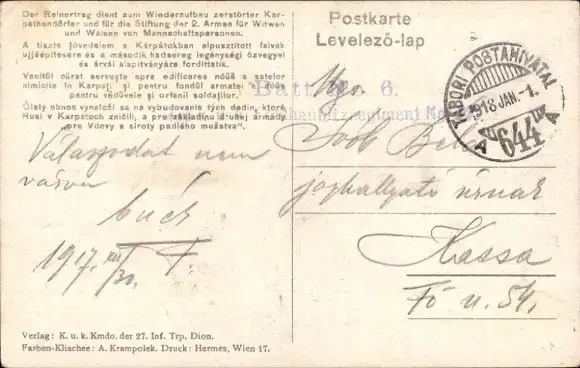 Der Reinertrag dient zum Wiederaufbau zerstörter Kar-
pathendörfer und für die Stiftung der 2. Armee für Witwen
und Waisen von Mannschaftspersonen.
A tiszta jövedelem a Kárpátokban elpusztitott falvak
ujjáépitésére és a második hadsereg legénységi özvegyei
és árvái alapitványára fordittatik.
Venitŏl cŭrat servește spre edificarea nóŭă a satelor
nimicite în Carpați și pentru fondŭl armatei a dóŭa
pentru vĕdŭvele și orfanii soldaților.
Čistý obnos vynaloží sa na vybudovanie tých dedín, ktoré
Rusi v Karpatoch zničili, a pre základinu druhej armády
„pre Vdovy a siroty padlého mužstva".
Postkarte
Levelező-lap
Batt. Nr. 6.
haubitzregiment No
TÁBORI POSTAHIVATAL
1918 JAN. 1.
A 644 A
Válaszodat nem
várva
1917. XII/30. F.
Bél
joghallgató úrnak
Kassa
Fő u. 54.
Verlag: K. u. k. Kmdo. der 27. Inf. Trp. Dion.
Farben-Klischee: A. Krampolek. Druck: Hermes, Wien 17.